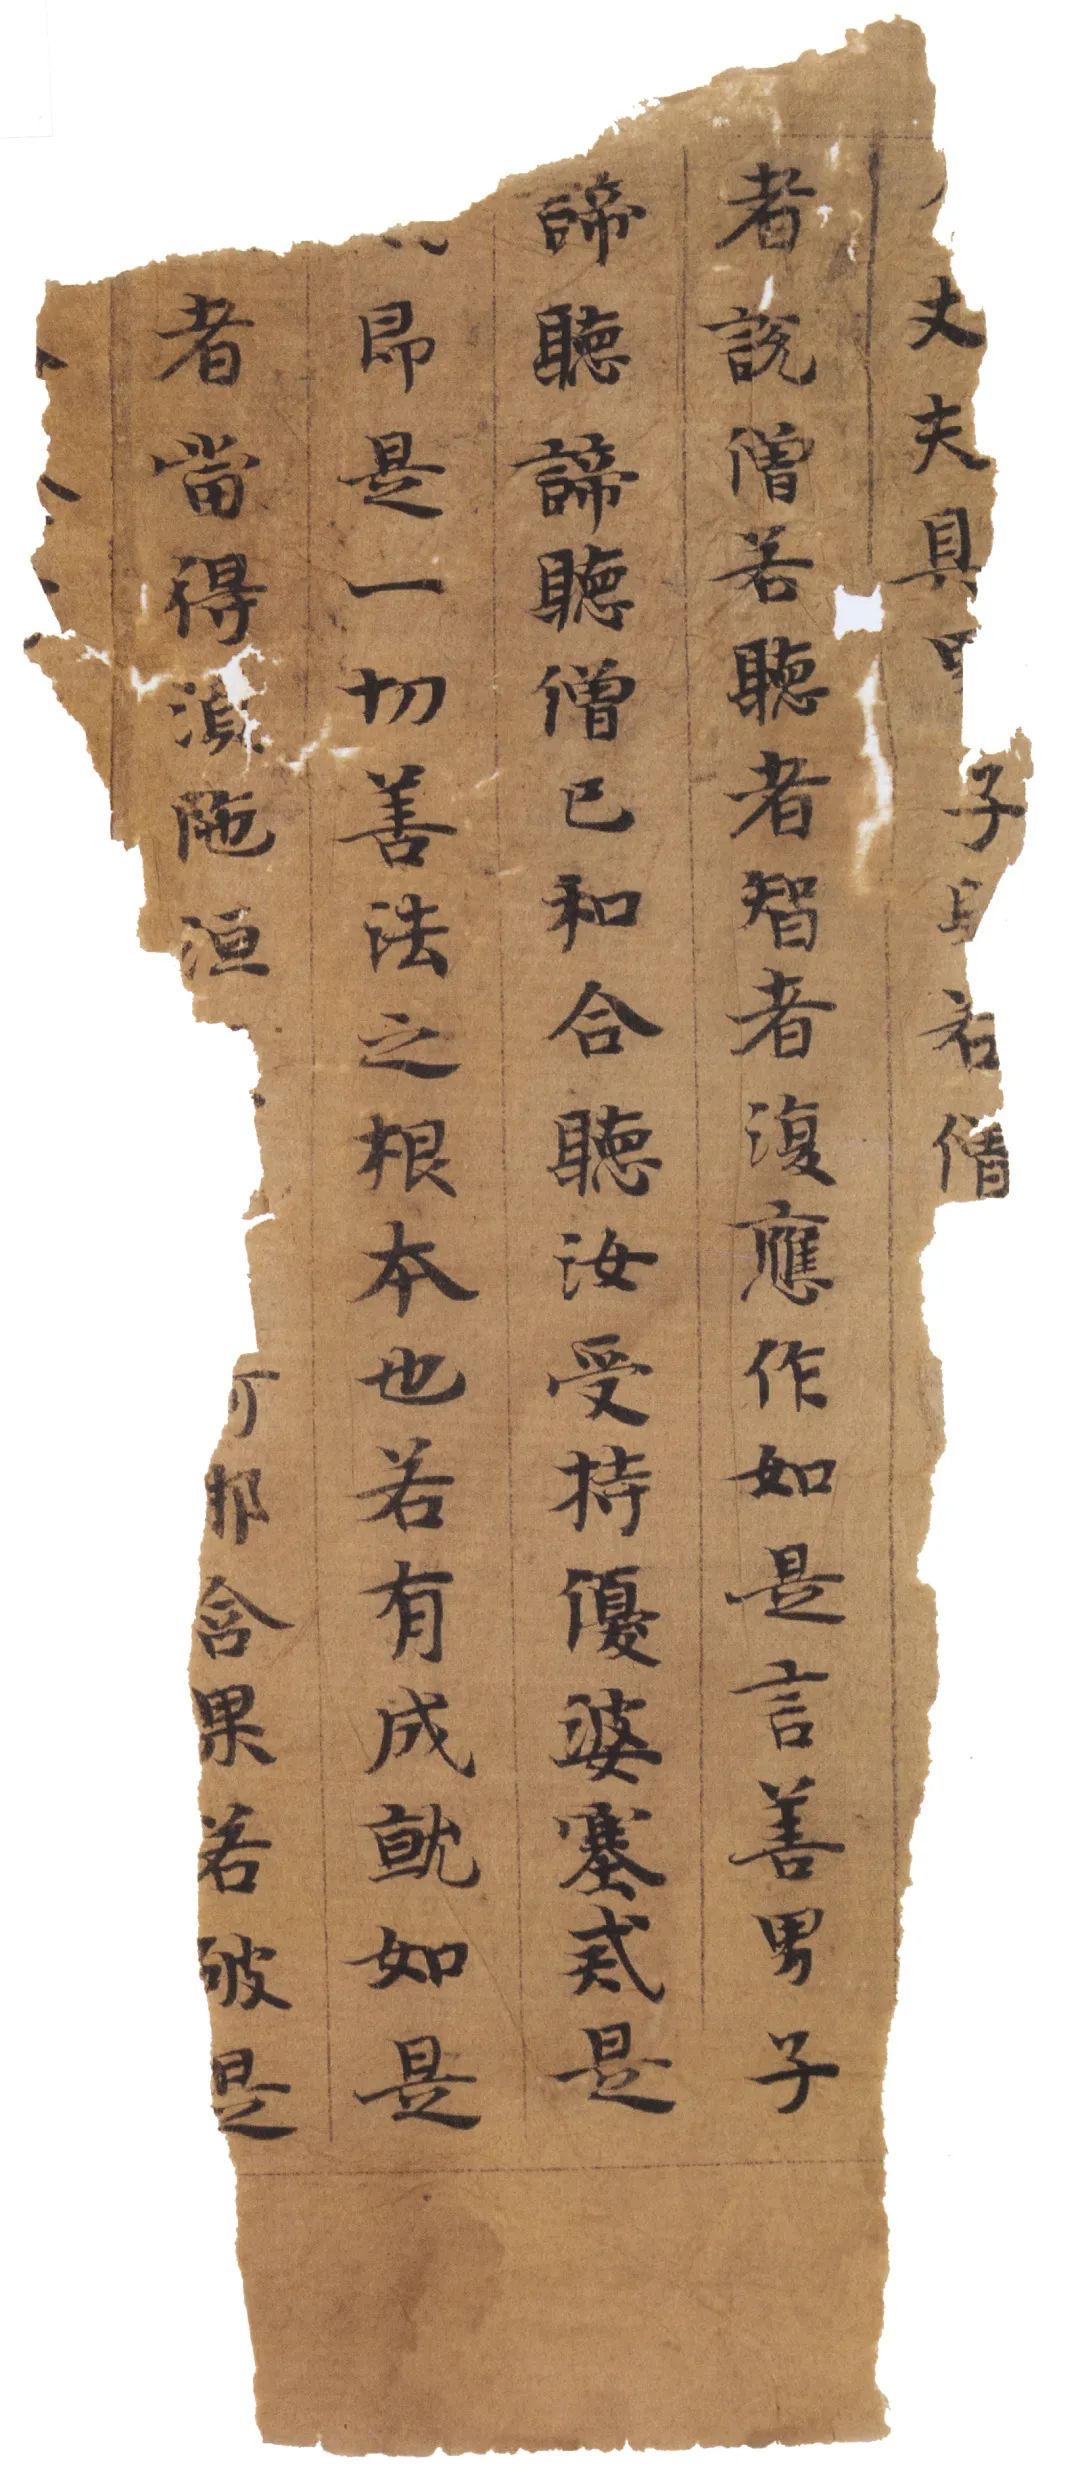 丈夫具男子身若僧
者說僧若聽者智者復應作如是言善男子
諦聽諦聽僧已和合聽汝受持優婆塞戒是
即是一切善法之根本也若有成就如是
者當得湏陁洹阿那含果若破是